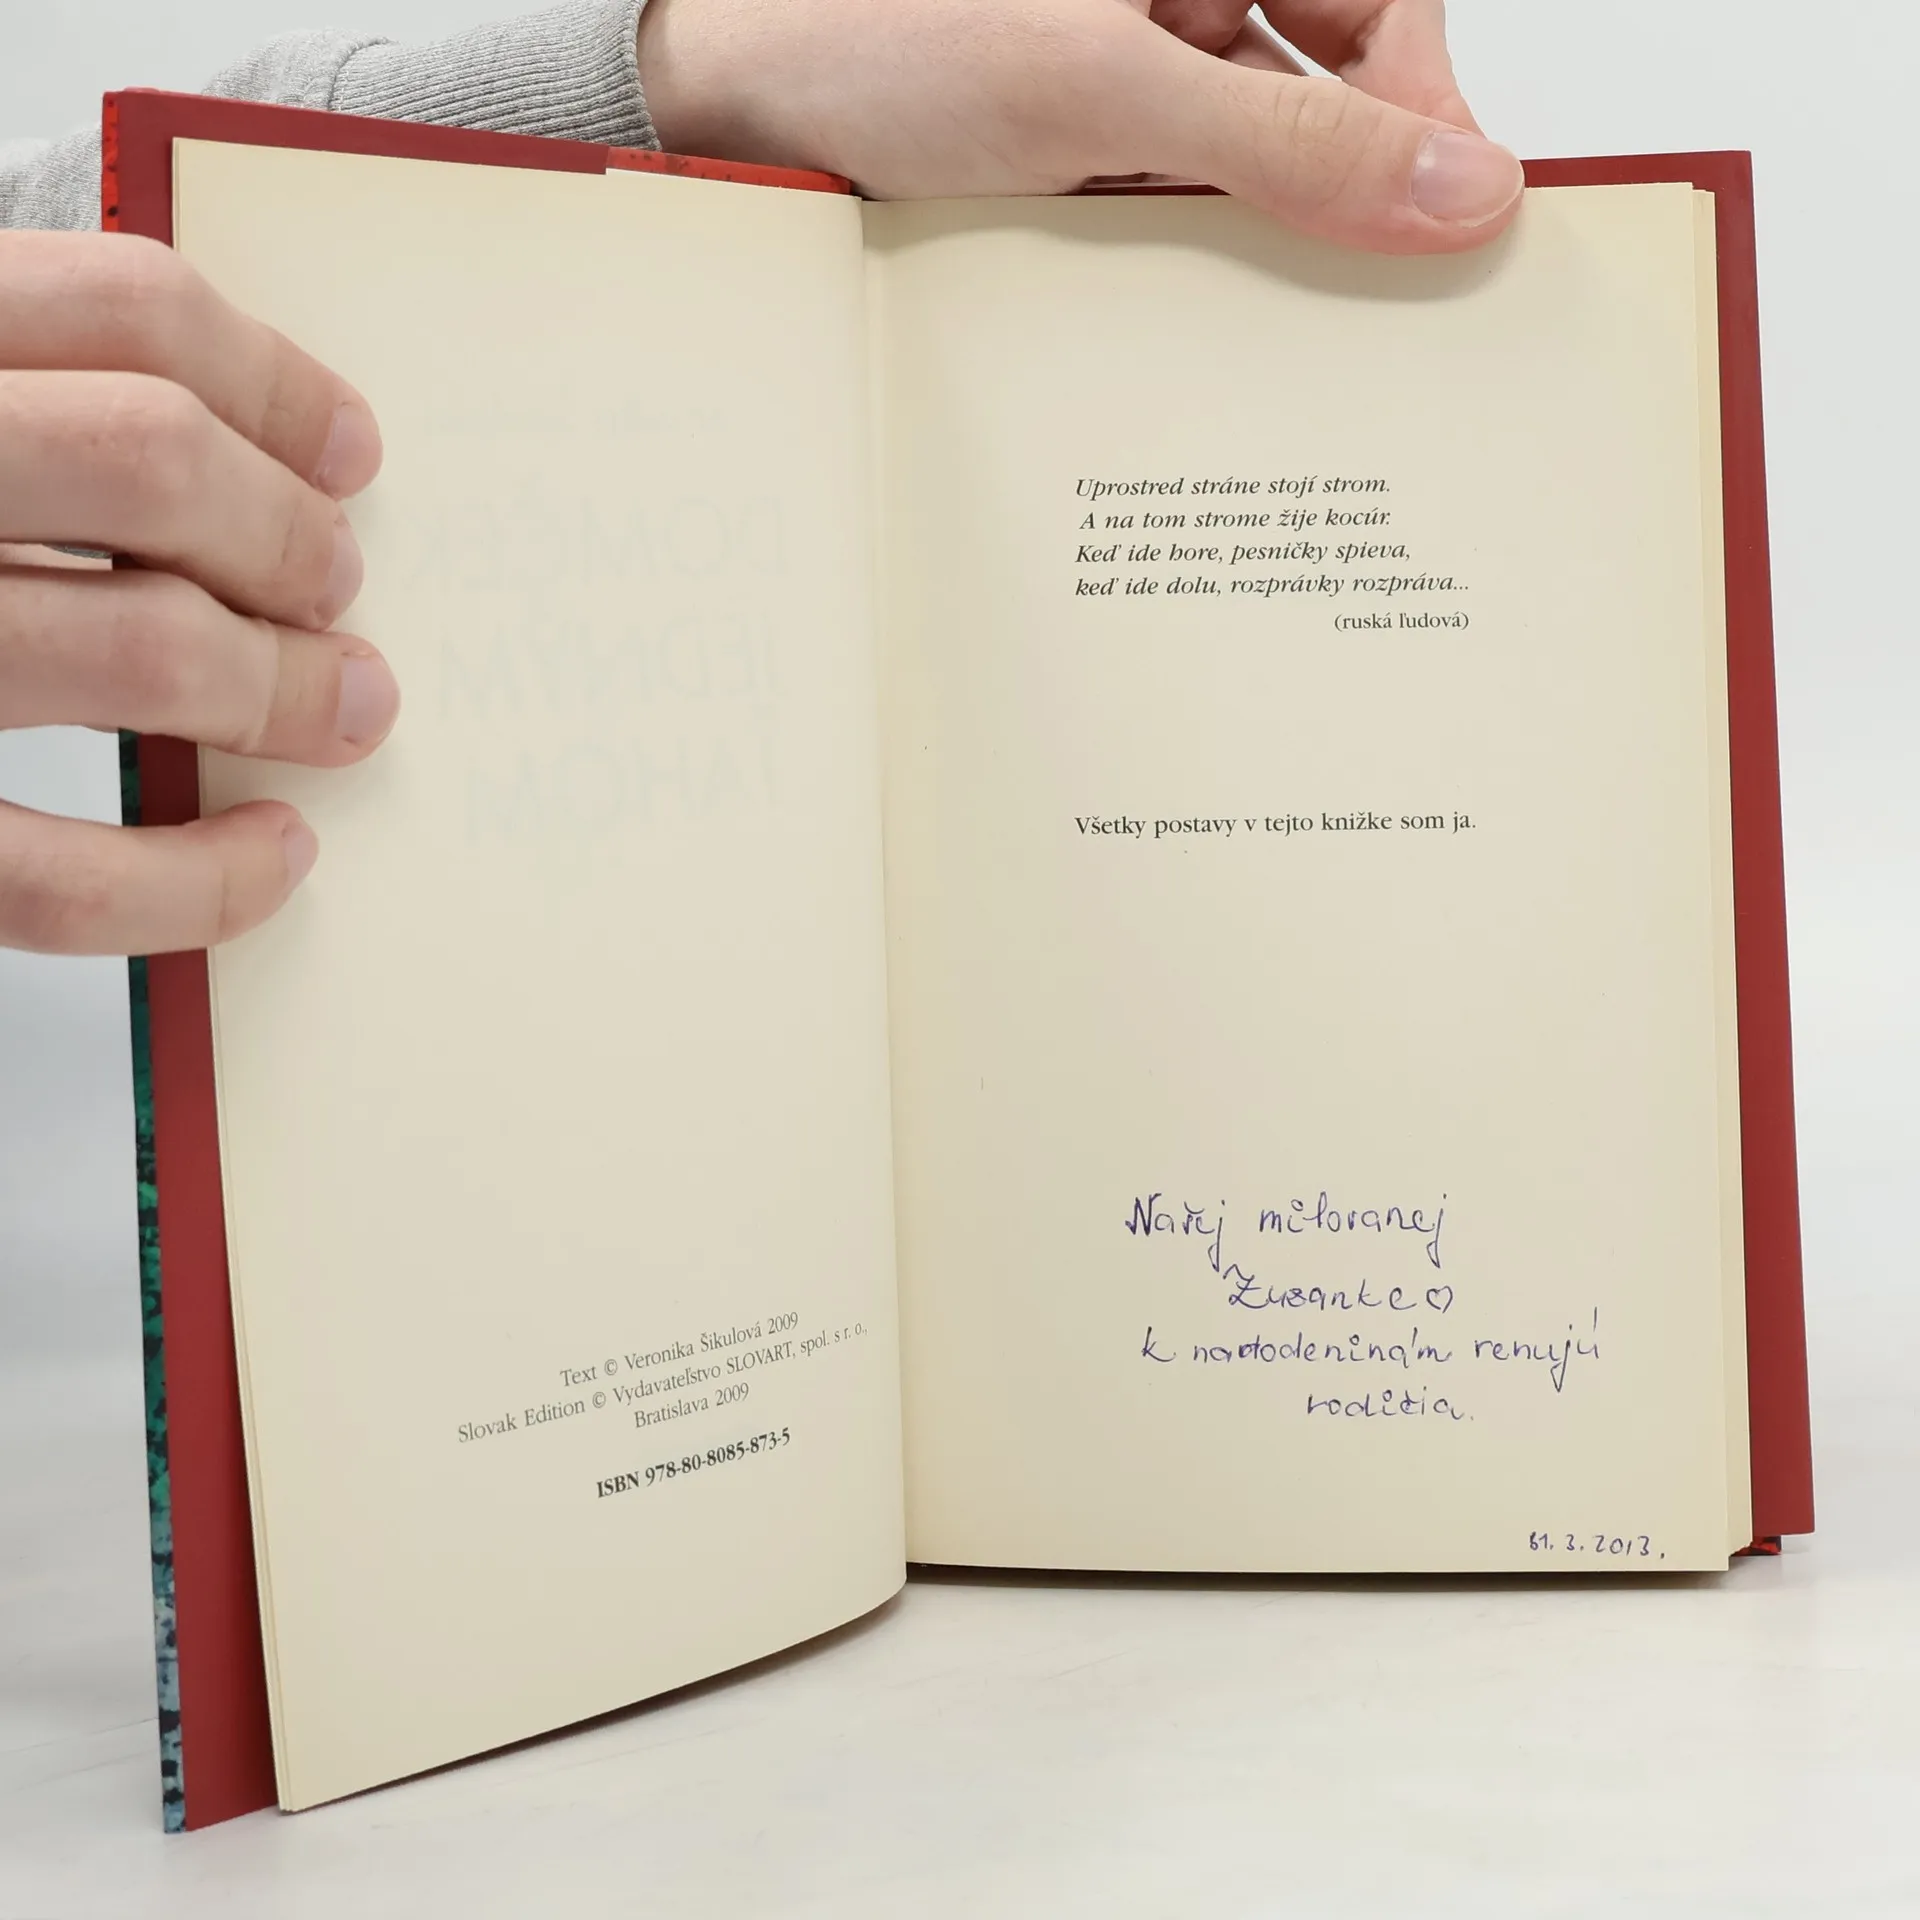 Text © Veronika Šikulová 2009
Slovak Edition © Vydavateľstvo SLOVART, spol. s r. o.,
Bratislava 2009
ISBN 978-80-8085-873-5
Uprostred stráne stojí strom.
A na tom strome žije kocúr.
Keď ide hore, pesničky spieva,
keď ide dolu, rozprávky rozpráva...
(ruská ľudová)
Všetky postavy v tejto knižke som ja.
Našej milovanej
Zuzanke♡
k narodeninám venujú
rodičia.
31. 3. 2013.